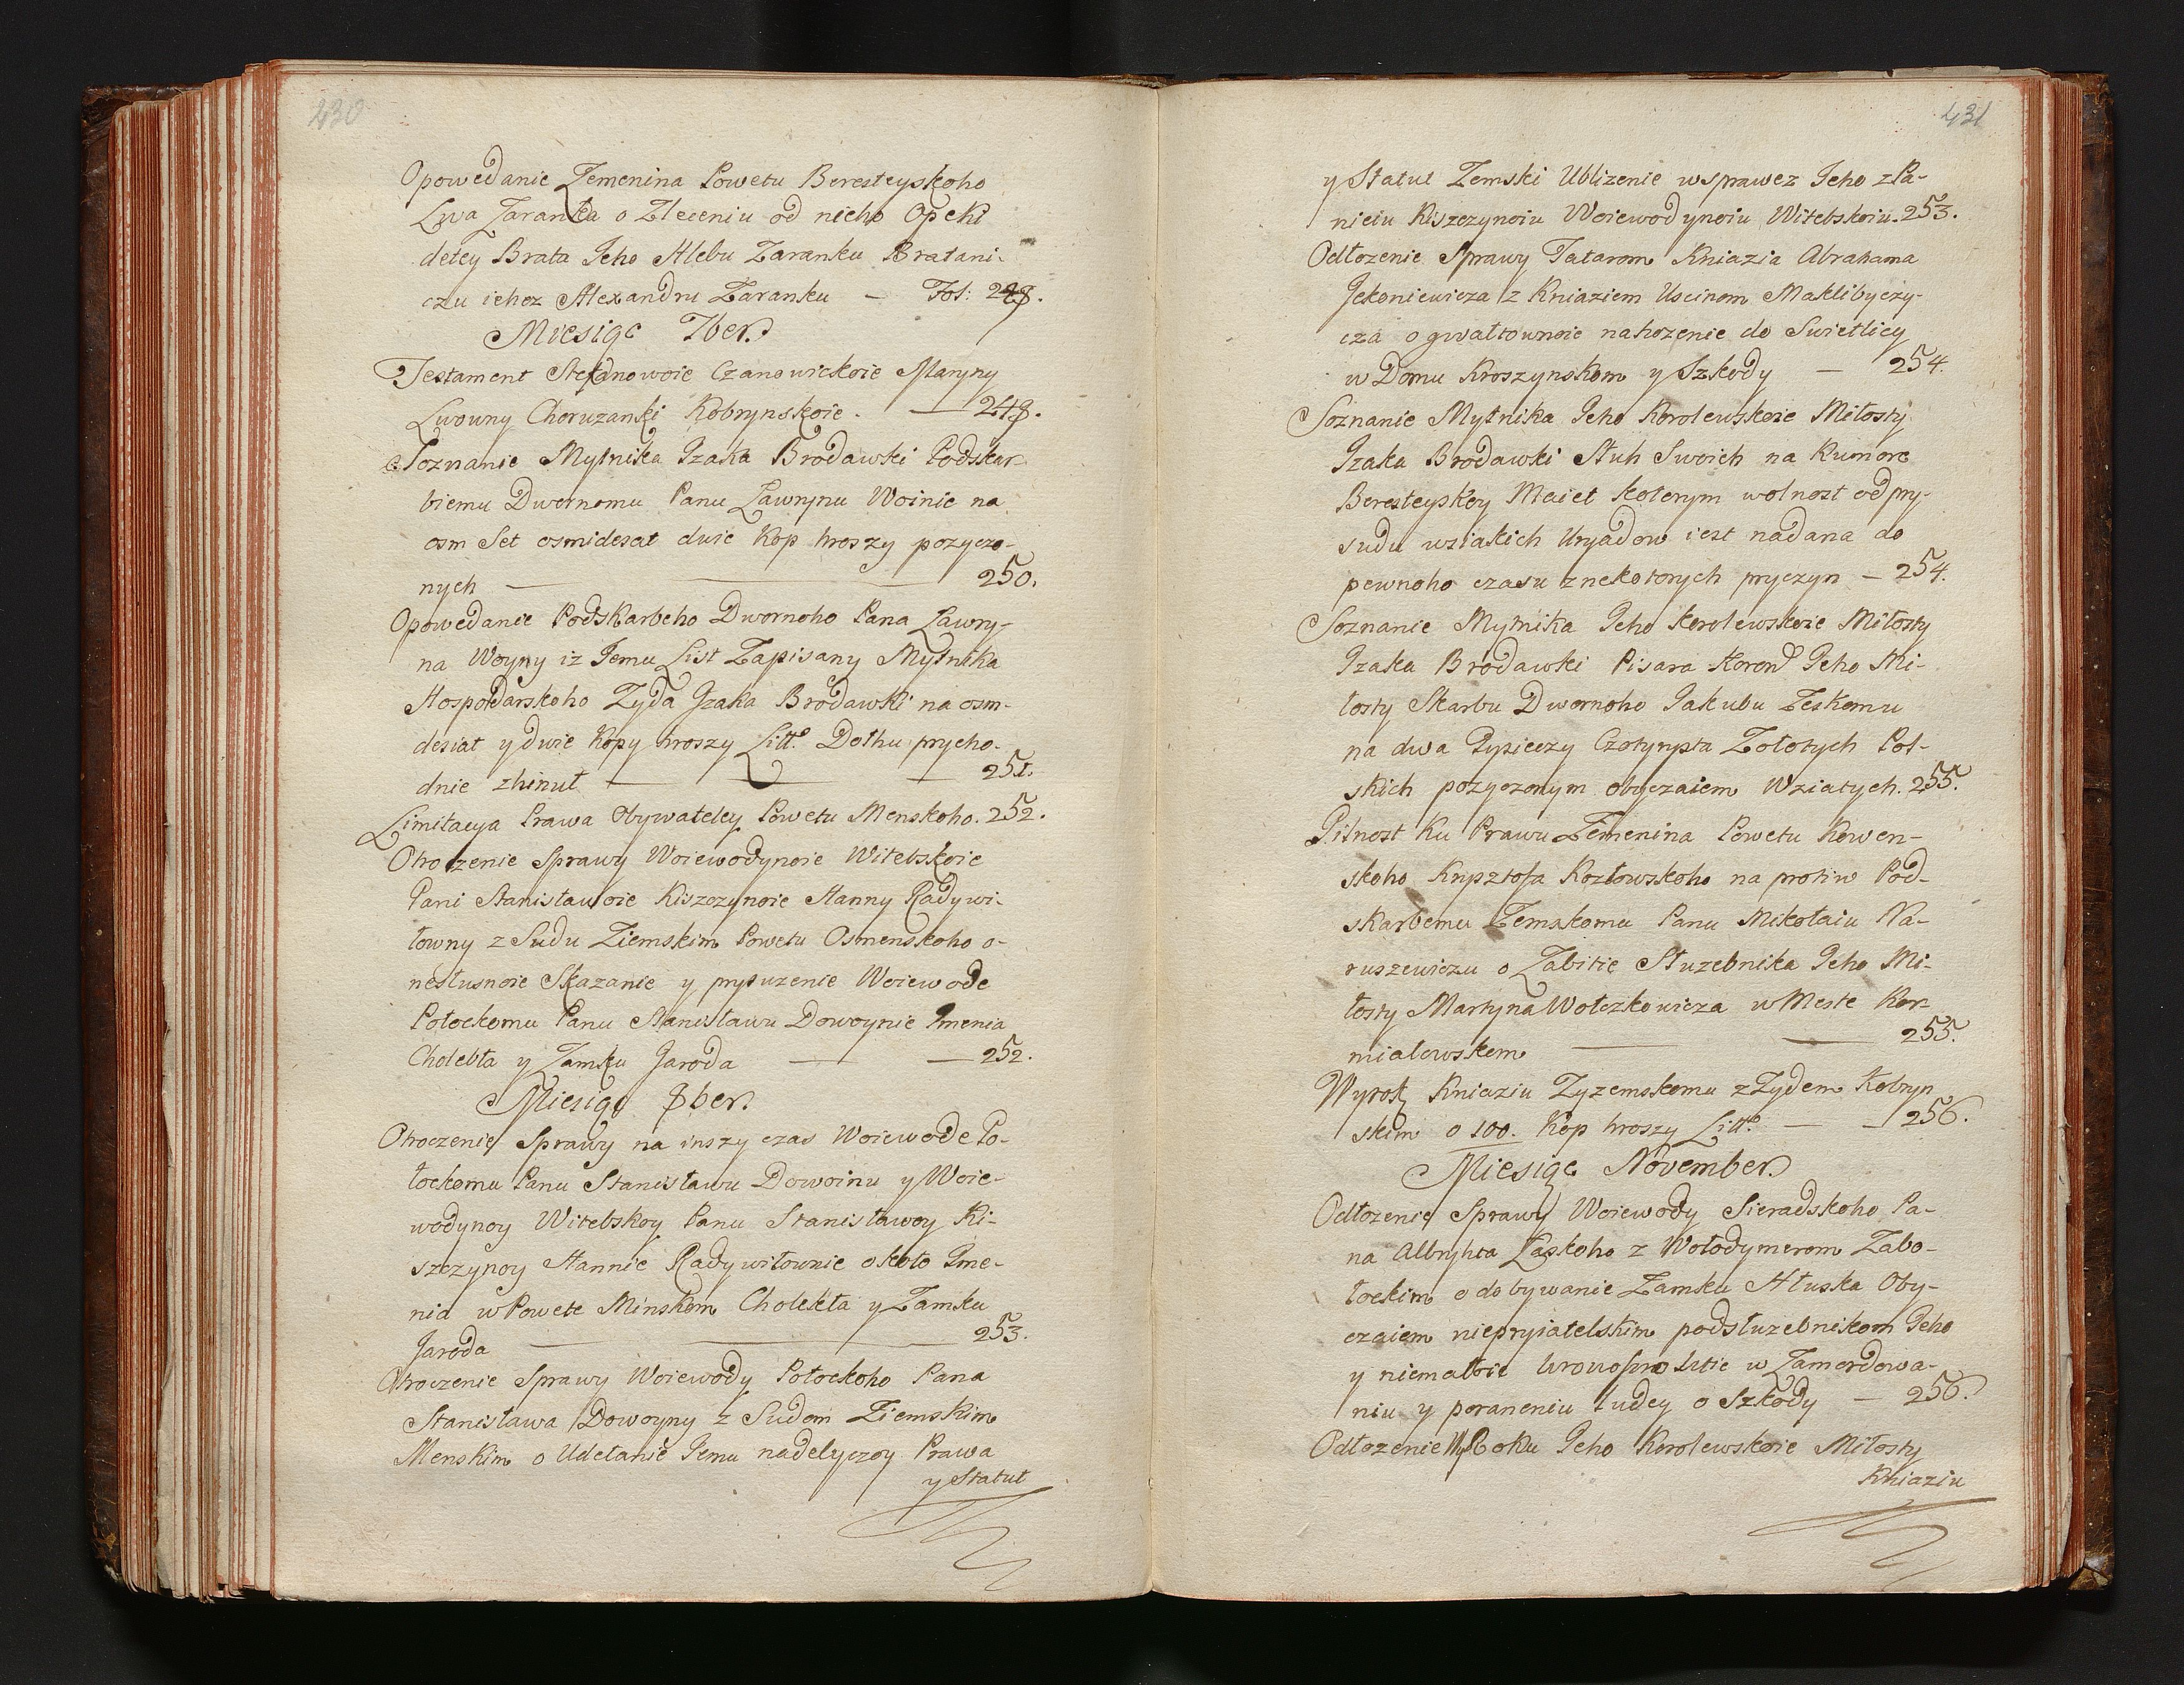 430
Opowedanie Zemenina Powetu Beresteyskoho
Lwa Zaranka o Zleceniu od nieho Opeki
detey Brata Jeho Hlebu Zaranku Bratani-
czu ichoz Alexandru Zaranku — Fol: 248.
Miesiąc 7ber.
Testament Stefanowoie Czanowickoie Maryny
Lwowny Choruzanki Kobrynskoie. — 248.
Soznanie Mytnika Izaka Brodawki Podskar-
biemu Dwornomu Panu Lawrynu Woinie na
osm Set osmidesat dwie Kop hroszy pozyczo-
nych — 250.
Opowedanie Podskarbeho Dwornoho Pana Lawry-
na Woyny iz Jemu List Zapisany Mytnika
Hospodarskoho Zyda Izaka Brodawki na osm-
desiat y dwie Kopy hroszy Litt: Dolhu prycho-
dnie zhinuł — 251.
Limitacya Prawa Obywateley Powetu Menskoho. 252.
Otroczenie Sprawy Woiewodynoie Witebskoie
Pani Stanisławoie Kiszczynoie Hanny Radywi-
łowny z Sudu Ziemskim Powetu Osmenskoho o-
nesłusnoie Skazanie y prysuzenie Woiewode
Połockomu Panu Stanisławu Dowoynie Imenia
Cholebła y Zamku Jaroda — 252.
Miesiąc 8ber.
Otroczenie Sprawy na inszy czas Woiewode Po-
łockomu Panu Stanisławu Dowoinu y Woie-
wodynoy Witebskoy Panu Stanisławoy Ki-
szczynoy Hannie Radywiłownie około Ime-
nia w Powete Minskom Cholekła y Zamku
Jaroda — 253.
Otroczenie Sprawy Woiewody Połockoho Pana
Stanisława Dowoyny z Sudom Ziemskim
Menskim o Udełanie Jemu nadelyczoy Prawa
y Statut
431
y Statut Zemski Ublizenie w sprawez Jeho z Pa-
nieiu Kiszczynoiu Woiewodynoiu Witebskoiu. 253.
Odłozenie Sprawy Tatarom Kniazia Abrahama
Jekoniewicza z Kniaziem Uscinom Maklibyczy-
cza o gwałtownoie nahozenie do Swietlicy
w Domu Kroszynskom y Szkody — 254.
Soznanie Mytnika Jeho Korolewskoie Miłosty
Izaka Brodawki Słuh Swoich na Kumore
Beresteyskoy Maiet kotorym wolnost od pry-
sudu wsiakich Uryadow iest nadana do
pewnoho czasu z nekotorych pryczyn — 254.
Soznanie Mytnika Jeho Korolewskoie Miłosty
Izaka Brodawki Pisara Korow Jeho Mi-
łosty Skarbu Dwornoho Jakubu Zeskomu
na dwa Tysieczy Czotyrysta Zołotych Pol-
skich pozyczonym obyczaiem Wziatych. 255.
Pilnost Ku Prawu Zemenina Powetu Kowen-
skoho Krysztofa Kozłowskoho na protiw Pod-
skarbemu Zemskomu Panu Mikołaiu Na-
ruszewiczu o Zabitie Słuzebnika Jeho Mi-
łosty Martyna Wołczkowicza w Meste Kor-
miałowskom — 255.
Wyrok Kniaziu Zyzemskomu z Zydem Kobryn
skim o 100. Kop hroszy Litt: — 256.
Miesiąc November.
Odłozenie Sprawy Woiewody Sieradskoho Pa-
na Albryhta Laskoho z Wołodymerom Zabo-
łockim o dobywanie Zamku Hłuska Oby-
czaiem niepryiatelskim podsłuzebnikom Jeho
y niemałoie krowoprolitie w Zamordowa-
niu y poraneniu ludey o Szkody — 256.
Odłozenie Wyroku Jeho Korolewskoie Miłosty
Kniaziu